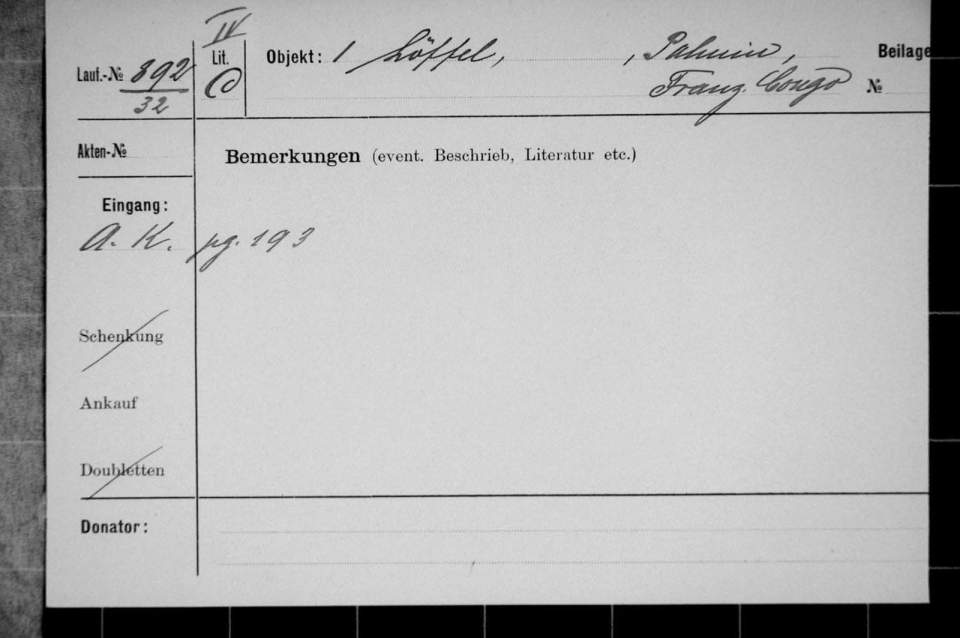 IV
Lauf.-№ 392 Lit. Objekt: 1 Löffel, , Pahuin, Beilage
32 C Franz. Congo №
Akten-№
Bemerkungen (event. Beschrieb, Literatur etc.)
Eingang:
A. K. pg. 193
Schenkung
Ankauf
Doubletten
Donator: